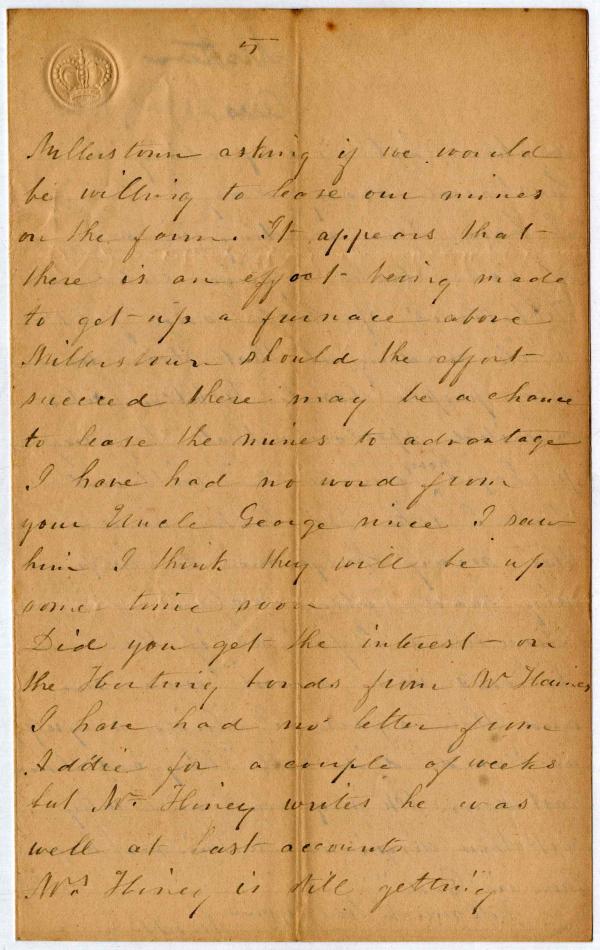 5
Millerstown asking if we would
be willing to lease our mines
on the farm. It appears that
there is an effort being made
to get up a furnace above
Millerstown should the effort
succeed there may be a chance
to lease the mines to advantage
I have had no word from
your Uncle George since I saw
him I think they will be up
some time soon
Did you get the interest on
the bonds from Mr Haines
I have had no letter from
Addie for a couple of weeks
but Mr. Hiney writes he was
well at last accounts
Mrs. Hiney is still getting